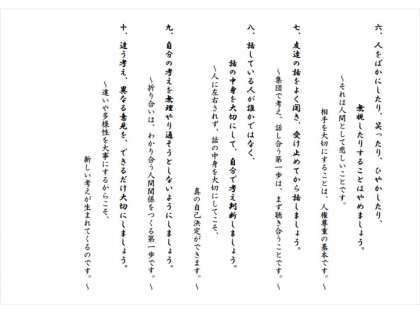 六、人をばかにしたり、笑ったり、ひやかしたり、
無視したりすることはやめましょう。
～それは人間として悲しいことです。
相手を大切にすることは、人権尊重の基本です。～
七、友達の話をよく聞き、受け止めてから話しましょう。
～集団で考え、話し合う第一歩は、まず聴き合うことです。～
八、話している人が誰かではなく、
話の中身を大切にして、自分で考え判断しましょう。
～人に左右されず、話の中身を大切にしてこそ、
真の自己決定ができます。～
九、自分の考えを無理やり通そうとしないようにしましょう。
～折り合いは、わかり合う人間関係をつくる第一歩です。～
十、違う考え、異なる意見を、できるだけ大切にしましょう。
～違いや多様性を大事にするからこそ、
新しい考えが生まれてくるのです。～